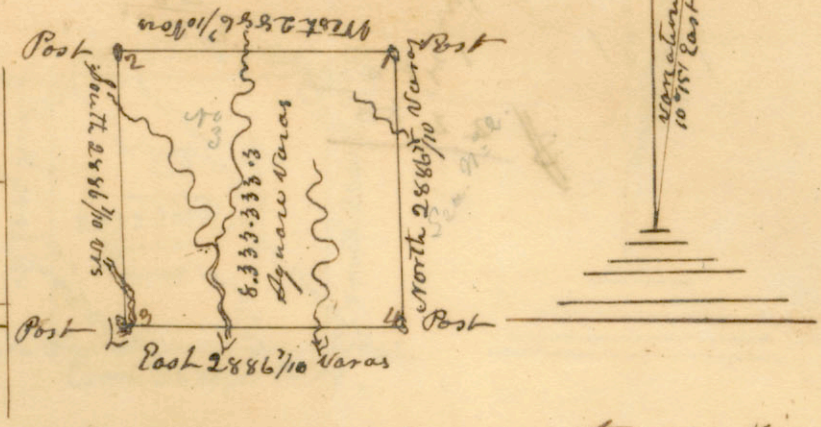 West 2886 7/10 Vars
Post 2
1 Post
South 2886 7/10 Vrs
No
3
8.333.333.3
Square Varas
North 2886 7/10 Varas
Sec. No
Post 3
4 Post
East 2886 7/10 Varas
Variation
10° 15' East